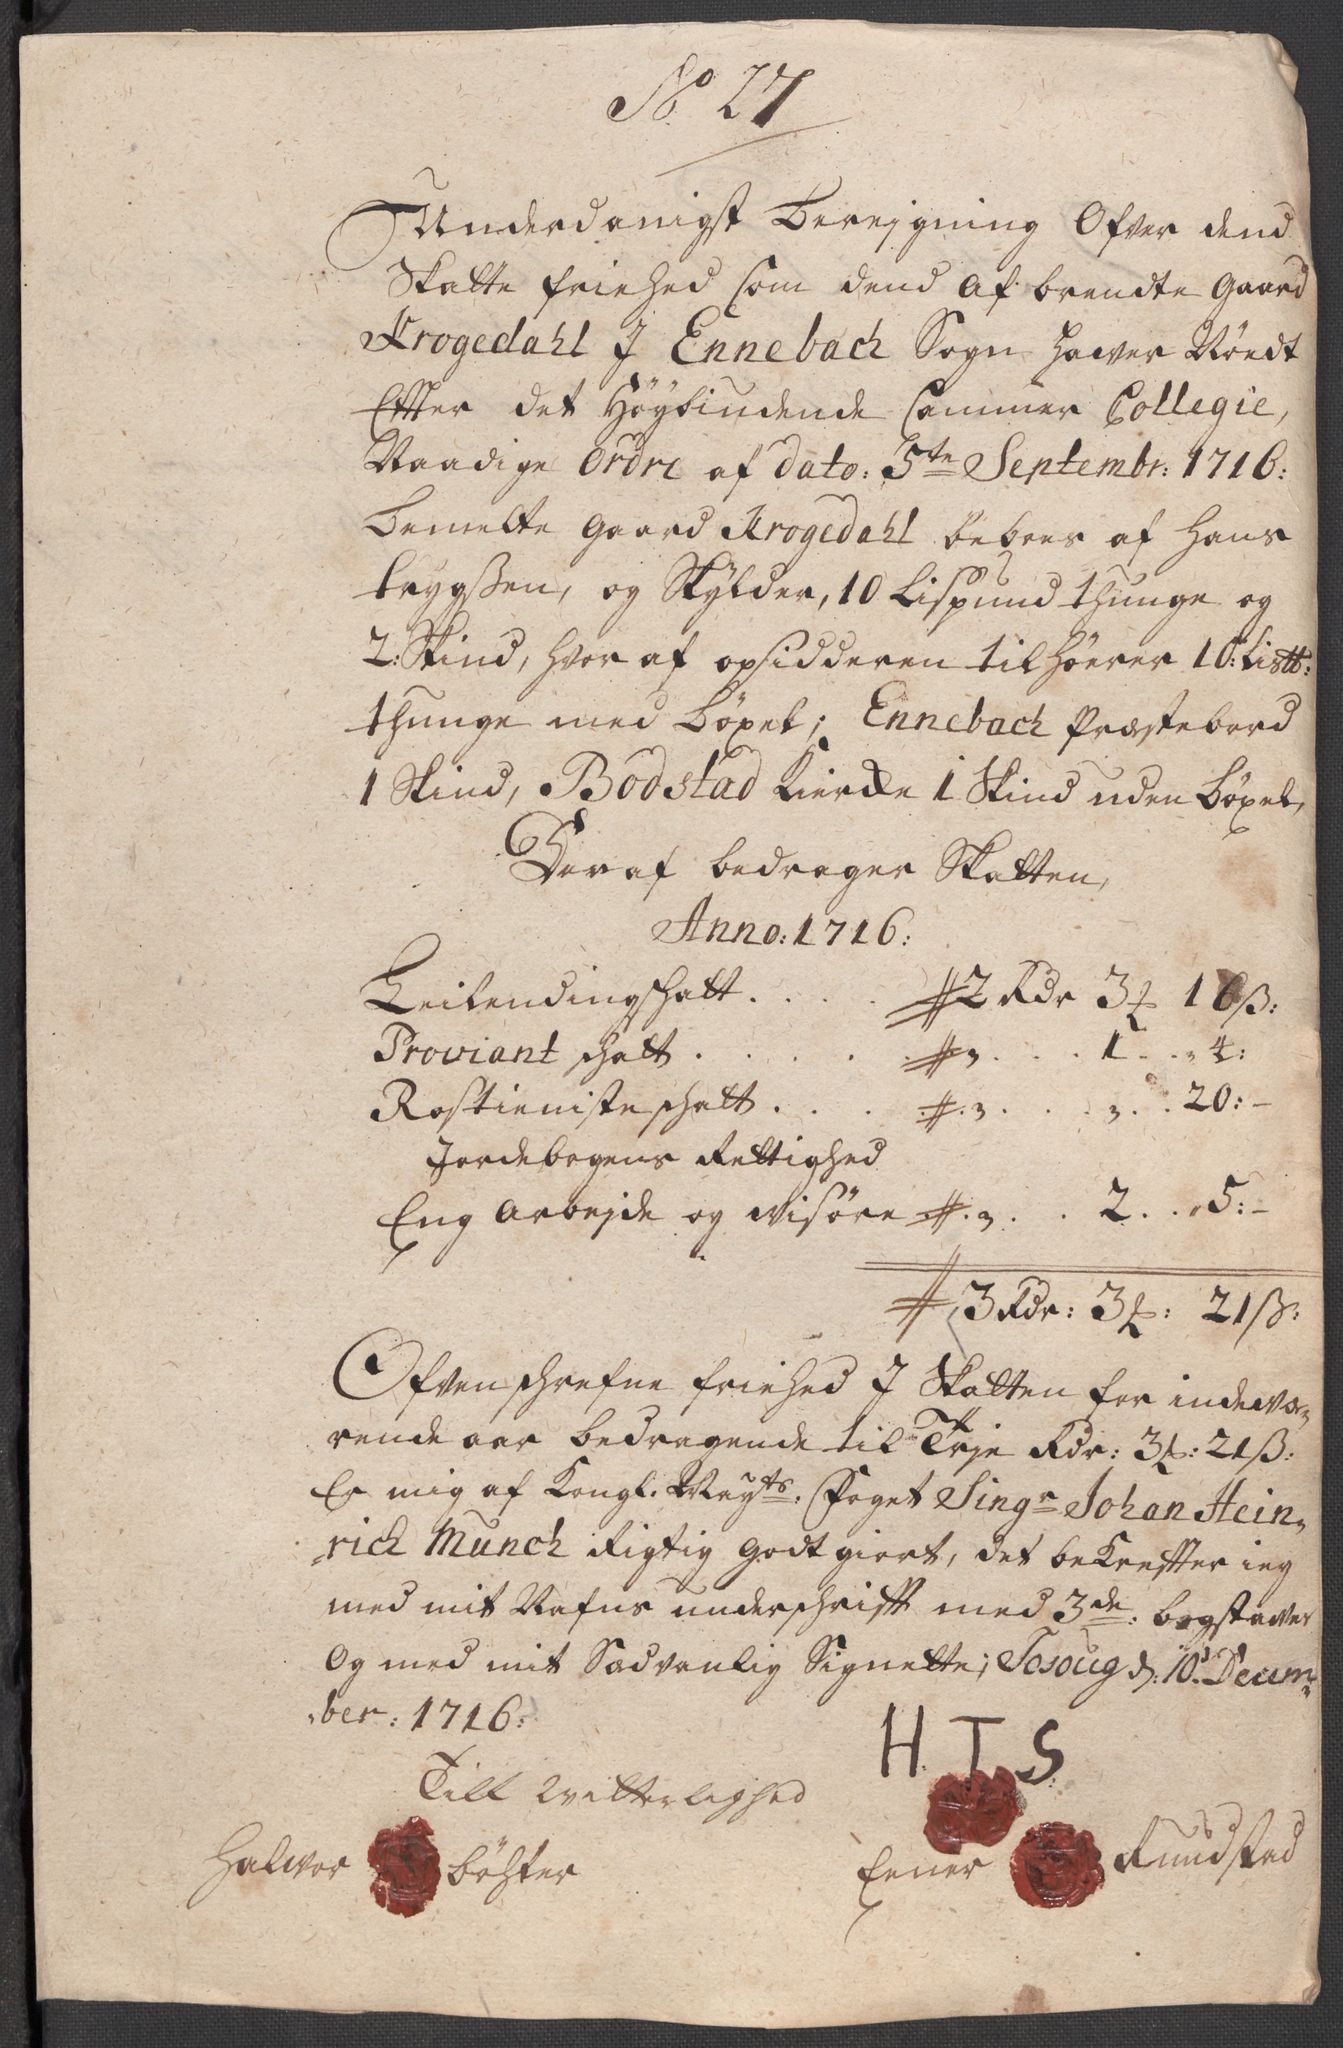 No 27
Underdanigst Beregning Ofver dend
Skatte friehed som dend af brendte gaard
Krogedahl J Ennebach Sogn hawer Nöedt
Effter det Höybiudende Cammer Collegie,
Naadige Ordre af dato: 5te Septembr: 1716:
bemelte gaard Krogedahl beboes af Hans
trygßen, og Skÿlder, 10 Lispund thunge og
2: Skind, hvor af opsidderen tilhöerer 10: List:
thunge med böxel; Ennebach Præstebord
1 Skind, Bodstad Kircke 1 Skind uden böxel,
Deraf bedrager Skatten,
Anno: 1716:
Leilendingschatt . . . . 2 Rdr 3 16ß:
Proviant schatt . . . . . " . . . 1 . . " 4:
Rostieniste schatt . . . . " . . . . " . . 20: –
Jordebogens Rettighed
Eng arbejde og wisöre . " . . . 2 . . " 5: –
3 Rdr: 3: 21ß:
Ofvenschrefne friehed J Skatten for indewæ„
rende aar bedragende til Trje Rdr: 3: 21ß:
Er mig af Kongl. Mayts: Foget Singr Johan Hein„
„rich Munch Rigtig godtgiort, det beKreffter ieg
med mit Nafns underschrifft med 3de: bogstawer
Og med mit Sædvanlig Signette; Tosoug d: 10: Decem„
„ber: 1716:
H. T. S.
Till Witterlighed
Halwor böhler
Eener Rundstad